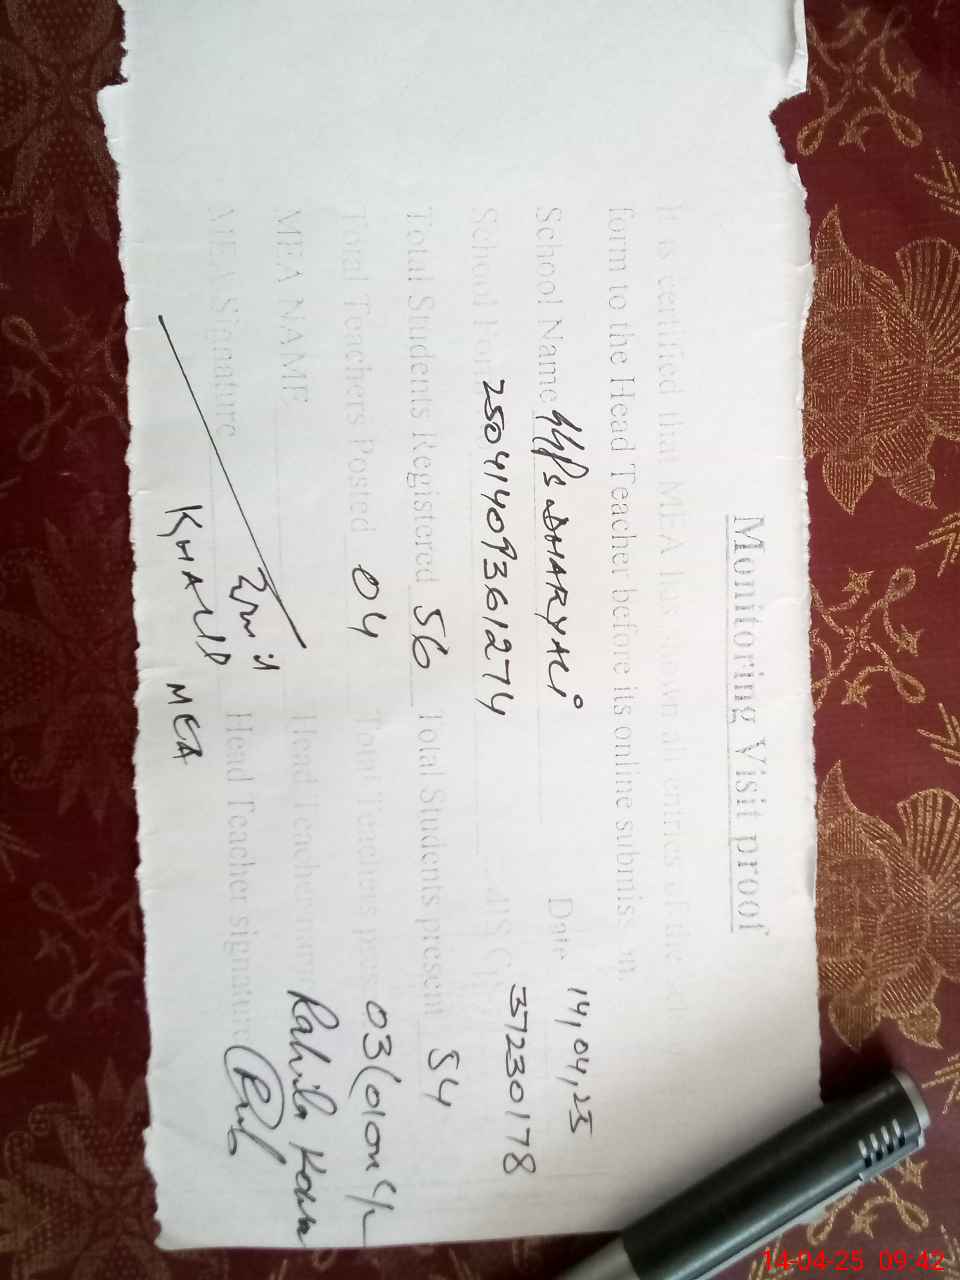 Monitoring Visit proof
It is certified that MEA has shown all entries of the
form to the Head Teacher before its online submission.
School Name GGPS DHARYALI Date 14,04,25
School 25041409361274 37230178
Total Students Registered 56 Total Students present 54
Total Teachers Posted 04 Total Teachers 03(01 on
MEA NAME Head Teacher name Rahila
MEA Signature Head Teacher signature
KHALID MEA
14-04-25 09:42